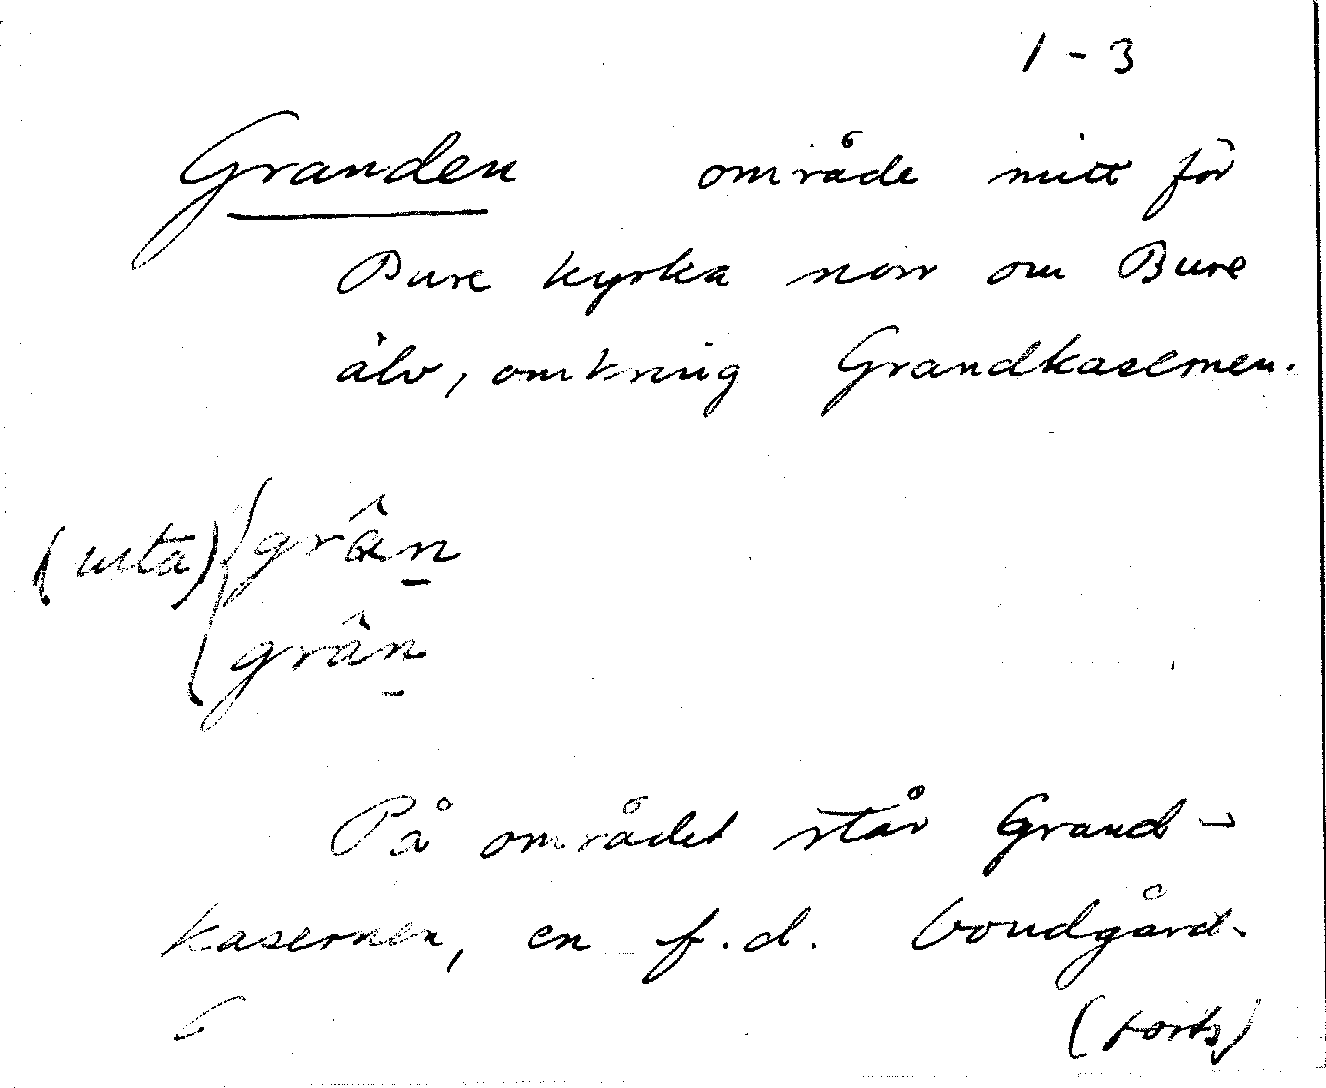 1-3
Granden område mitt för
Bure kyrka norr om Bure
älv, omkring Grandkasernen.
(uta) { grân
grân
På området står Grand-
kasernen, en f.d. bondgård.
(forts)